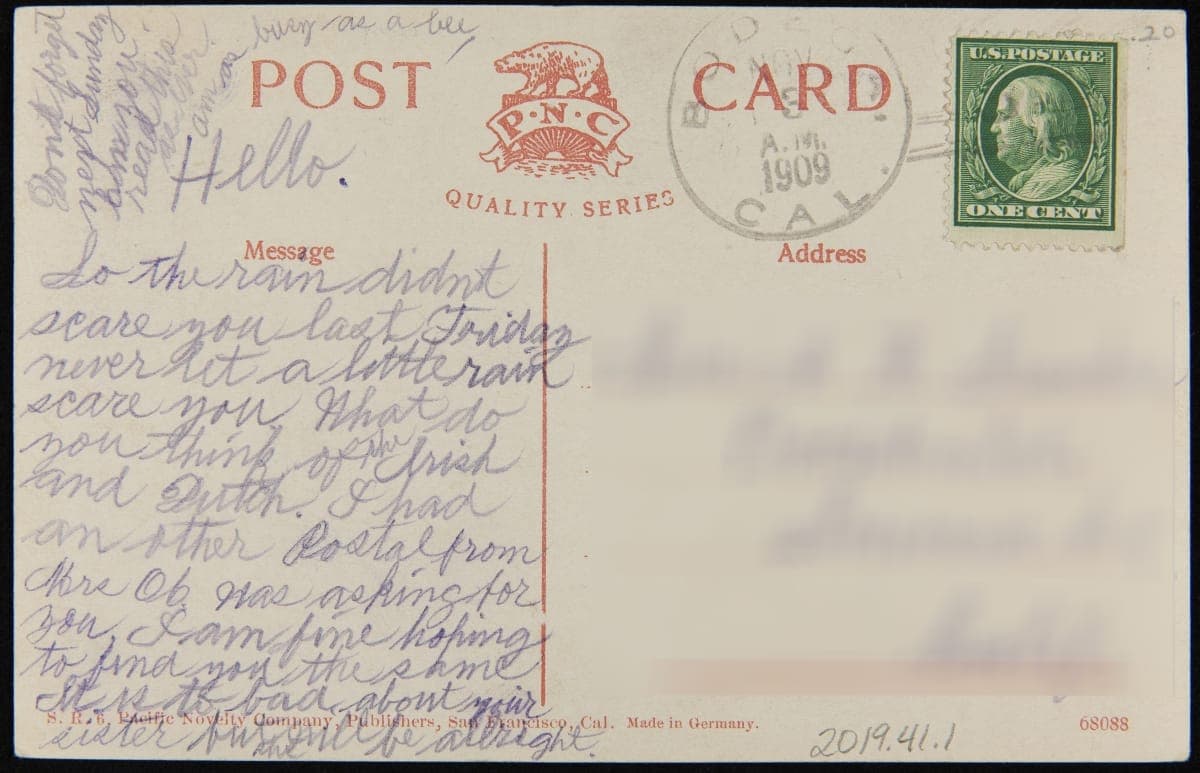 busy as a bee,
Dont forget
next Sunday
read this
as ever
am as
.20
POST CARD
P·N·C
QUALITY SERIES
NOV
8
A.M.
1909
CAL.
U.S.POSTAGE
ONE CENT
Hello.
Message
Address
So the rain didnt
scare you last Friday
never let a little rain
scare you. What do
you think of the Irish
and Dutch. I had
an other Postal from
Mrs Ob. was asking for
you. I am fine hoping
to find you the same
It is to bad about your
sister but she'll be allright.
S. R. 6. Pacific Novelty Company, Publishers, San Francisco, Cal. Made in Germany.
68088
2019.41.1